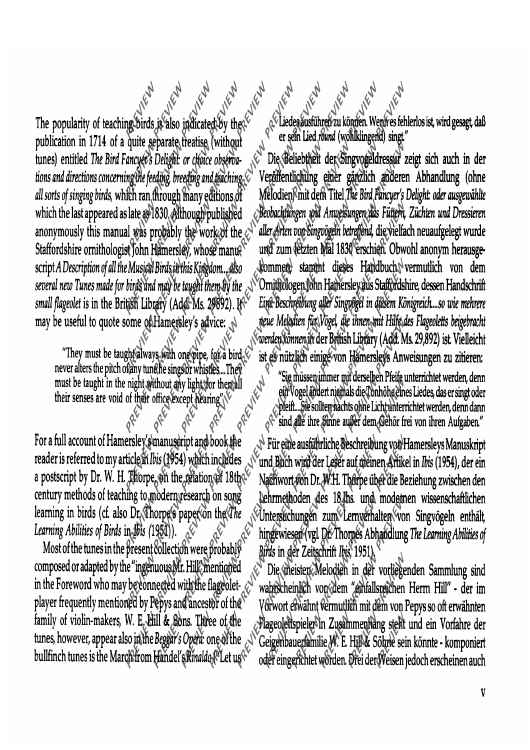 The popularity of teaching birds is also indicated by the
publication in 1714 of a quite separate treatise (without
tunes) entitled The Bird Fancyer's Delight: or choice observa-
tions and directions concerning the feeding, breeding and teaching
all sorts of singing birds, which ran through many editions of
which the last appeared as late as 1830. Although published
anonymously this manual was probably the work of the
Staffordshire ornithologist John Hamersley, whose manu-
script A Description of all the Musical Birds in this Kingdom... also
several new Tunes made for birds and may be taught them by the
small flageolet is in the British Library (Add. Ms. 29892). It
may be useful to quote some of Hamersley's advice:
"They must be taught always with one pipe, for a bird
never alters the pitch of any tune he sings or whistles...They
must be taught in the night without any light, for then all
their senses are void of their office except hearing".
For a full account of Hamersley's manuscript and book the
reader is referred to my article in Ibis (1954) which includes
a postscript by Dr. W. H. Thorpe, on the relation of 18th
century methods of teaching to modern research on song
learning in birds (cf. also Dr. Thorpe's paper on the The
Learning Abilities of Birds in Ibis (1951)).
Most of the tunes in the present collection were probably
composed or adapted by the "ingenuous Mr. Hill" mentioned
in the Foreword who may be connected with the flageolet-
player frequently mentioned by Pepys and ancestor of the
family of violin-makers, W. E. Hill & Sons. Three of the
tunes, however, appear also in the Beggar's Opera: one of the
bullfinch tunes is the March from Handel's Rinaldo." Let us
Liedes ausführen zu können. Wenn es fehlerlos ist, wird gesagt, daß
er sein Lied round (wohlklingend) singt."
Die Beliebtheit der Singvogeldressur zeigt sich auch in der
Veröffentlichung einer gänzlich anderen Abhandlung (ohne
Melodien) mit dem Titel The Bird Fancyer's Delight: oder ausgewählte
Beobachtungen und Anweisungen das Füttern, Züchten und Dressieren
aller Arten von Singvögeln betreffend, die vielfach neuaufgelegt wurde
und zum letzten Mal 1830 erschien. Obwohl anonym herausge-
kommen, stammt dieses Handbuch vermutlich von dem
Ornithologen John Hamersley aus Staffordshire, dessen Handschrift
Eine Beschreibung aller Singvögel in diesem Königreich...so wie mehrere
neue Melodien für Vögel, die ihnen mit Hilfe des Flageoletts beigebracht
werden können in der British Library (Add. Ms. 29,892) ist. Vielleicht
ist es nützlich einige von Hamersley's Anweisungen zu zitieren:
"Sie müssen immer mit derselben Pfeife unterrichtet werden, denn
ein Vogel ändert niemals die Tonhöhe eines Liedes, das er singt oder
pfeift...Sie sollten nachts ohne Licht unterrichtet werden, denn dann
sind alle ihre Sinne außer dem Gehör frei von ihren Aufgaben."
Für eine ausführliche Beschreibung von Hamersleys Manuskript
und Buch wird der Leser auf meinen Artikel in Ibis (1954), der ein
Nachwort von Dr. W.H. Thorpe über die Beziehung zwischen den
Lehrmethoden des 18.Jhs. und modernen wissenschaftlichen
Untersuchungen zum Lernverhalten von Singvögeln enthält,
hingewiesen (vgl. Dr. Thorpes Abhandlung The Learning Abilities of
Birds in der Zeitschrift Ibis, 1951).
Die meisten Melodien in der vorliegenden Sammlung sind
wahrscheinlich von dem "einfallsreichen Herrn Hill" - der im
Vorwort erwähnt vermutlich mit dem von Pepys so oft erwähnten
Flageolettspieler in Zusammenhang steht und ein Vorfahre der
Geigenbauerfamilie W. E. Hill & Söhne sein könnte - komponiert
oder eingerichtet worden. Drei der Weisen jedoch erscheinen auch
v